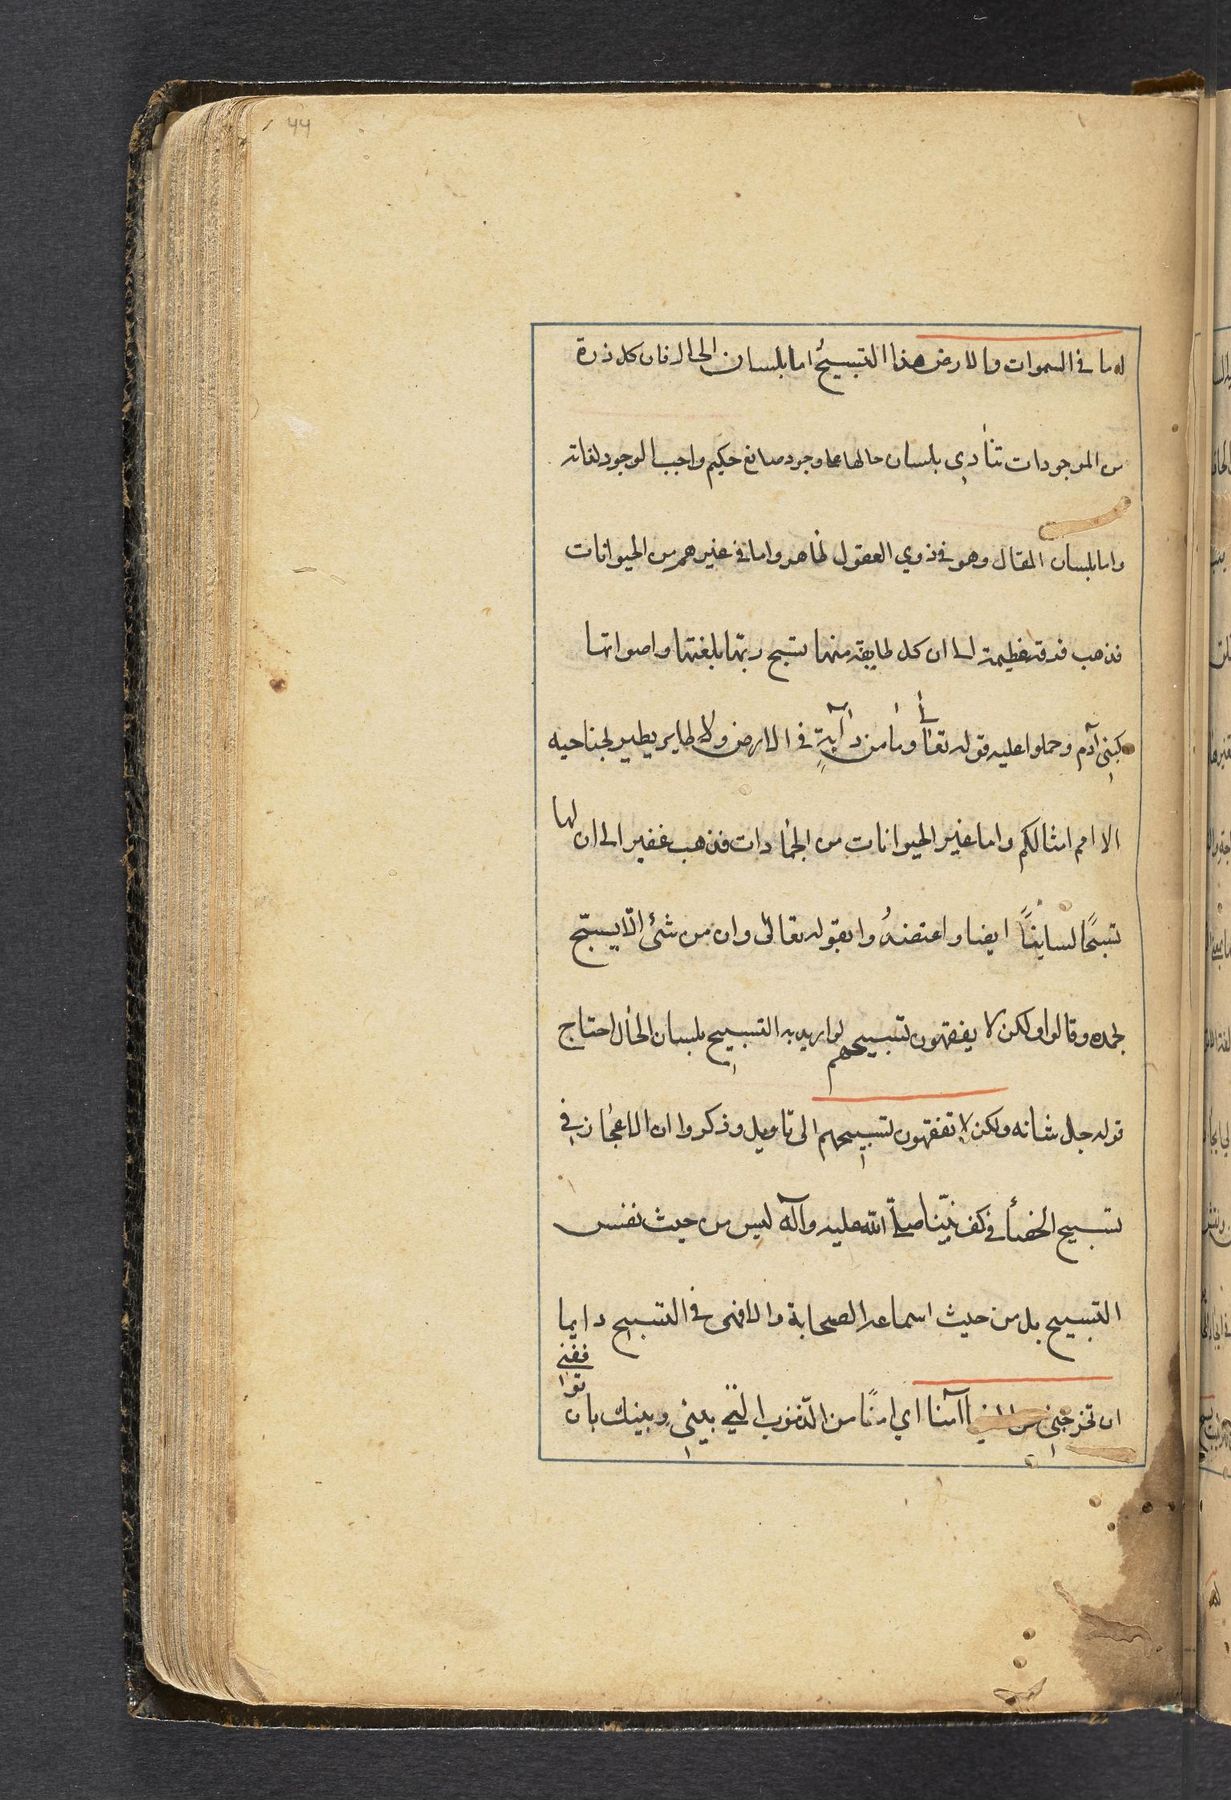 ٤٤
له ما في السموات والارض هذا التسبيح اما بلسان الحال فان كل ذرة
من الموجودات تنادي بلسان حالها على وجود صانع حكيم واجب الوجود لذاته
واما بلسان المقال وهو في ذوي العقول ظاهر واما في غيرهم من الحيوانات
فذهب فرقة عظيمة الى ان كل طايفة منها تسبح ربّها بلغتها واصواتها
كبني آدم وحملوا عليه قوله تعالى وما من دابةٍ في الارض ولا طاير يطير بجناحيه
الا امم امثالكم واما غير الحيوانات من الجمادات فذهب غفير الى ان لها
تسبيحًا لسانيًّا ايضا واعتضدُوا بقوله تعالى وان من شئ الّا يسبّح
بحمده وقالوا ولكن لا يفقهون تسبيحهم لو اريد به التسبيح بلسان الحال احتاج
قوله جل شانه ولكن لا تفقهون تسبيحهم الى تاويل وذكروا ان الاعجاز في
تسبيح الحصا في كف نبيّنا صلّى الله عليه وآله ليس من حيث نفس
التسبيح بل من حيث اسماعه الصحابة والا فهى في التسبيح دايما
ان تخرجني من آمنا اي امنًا من الذّنوب التي بيني وبينك بان